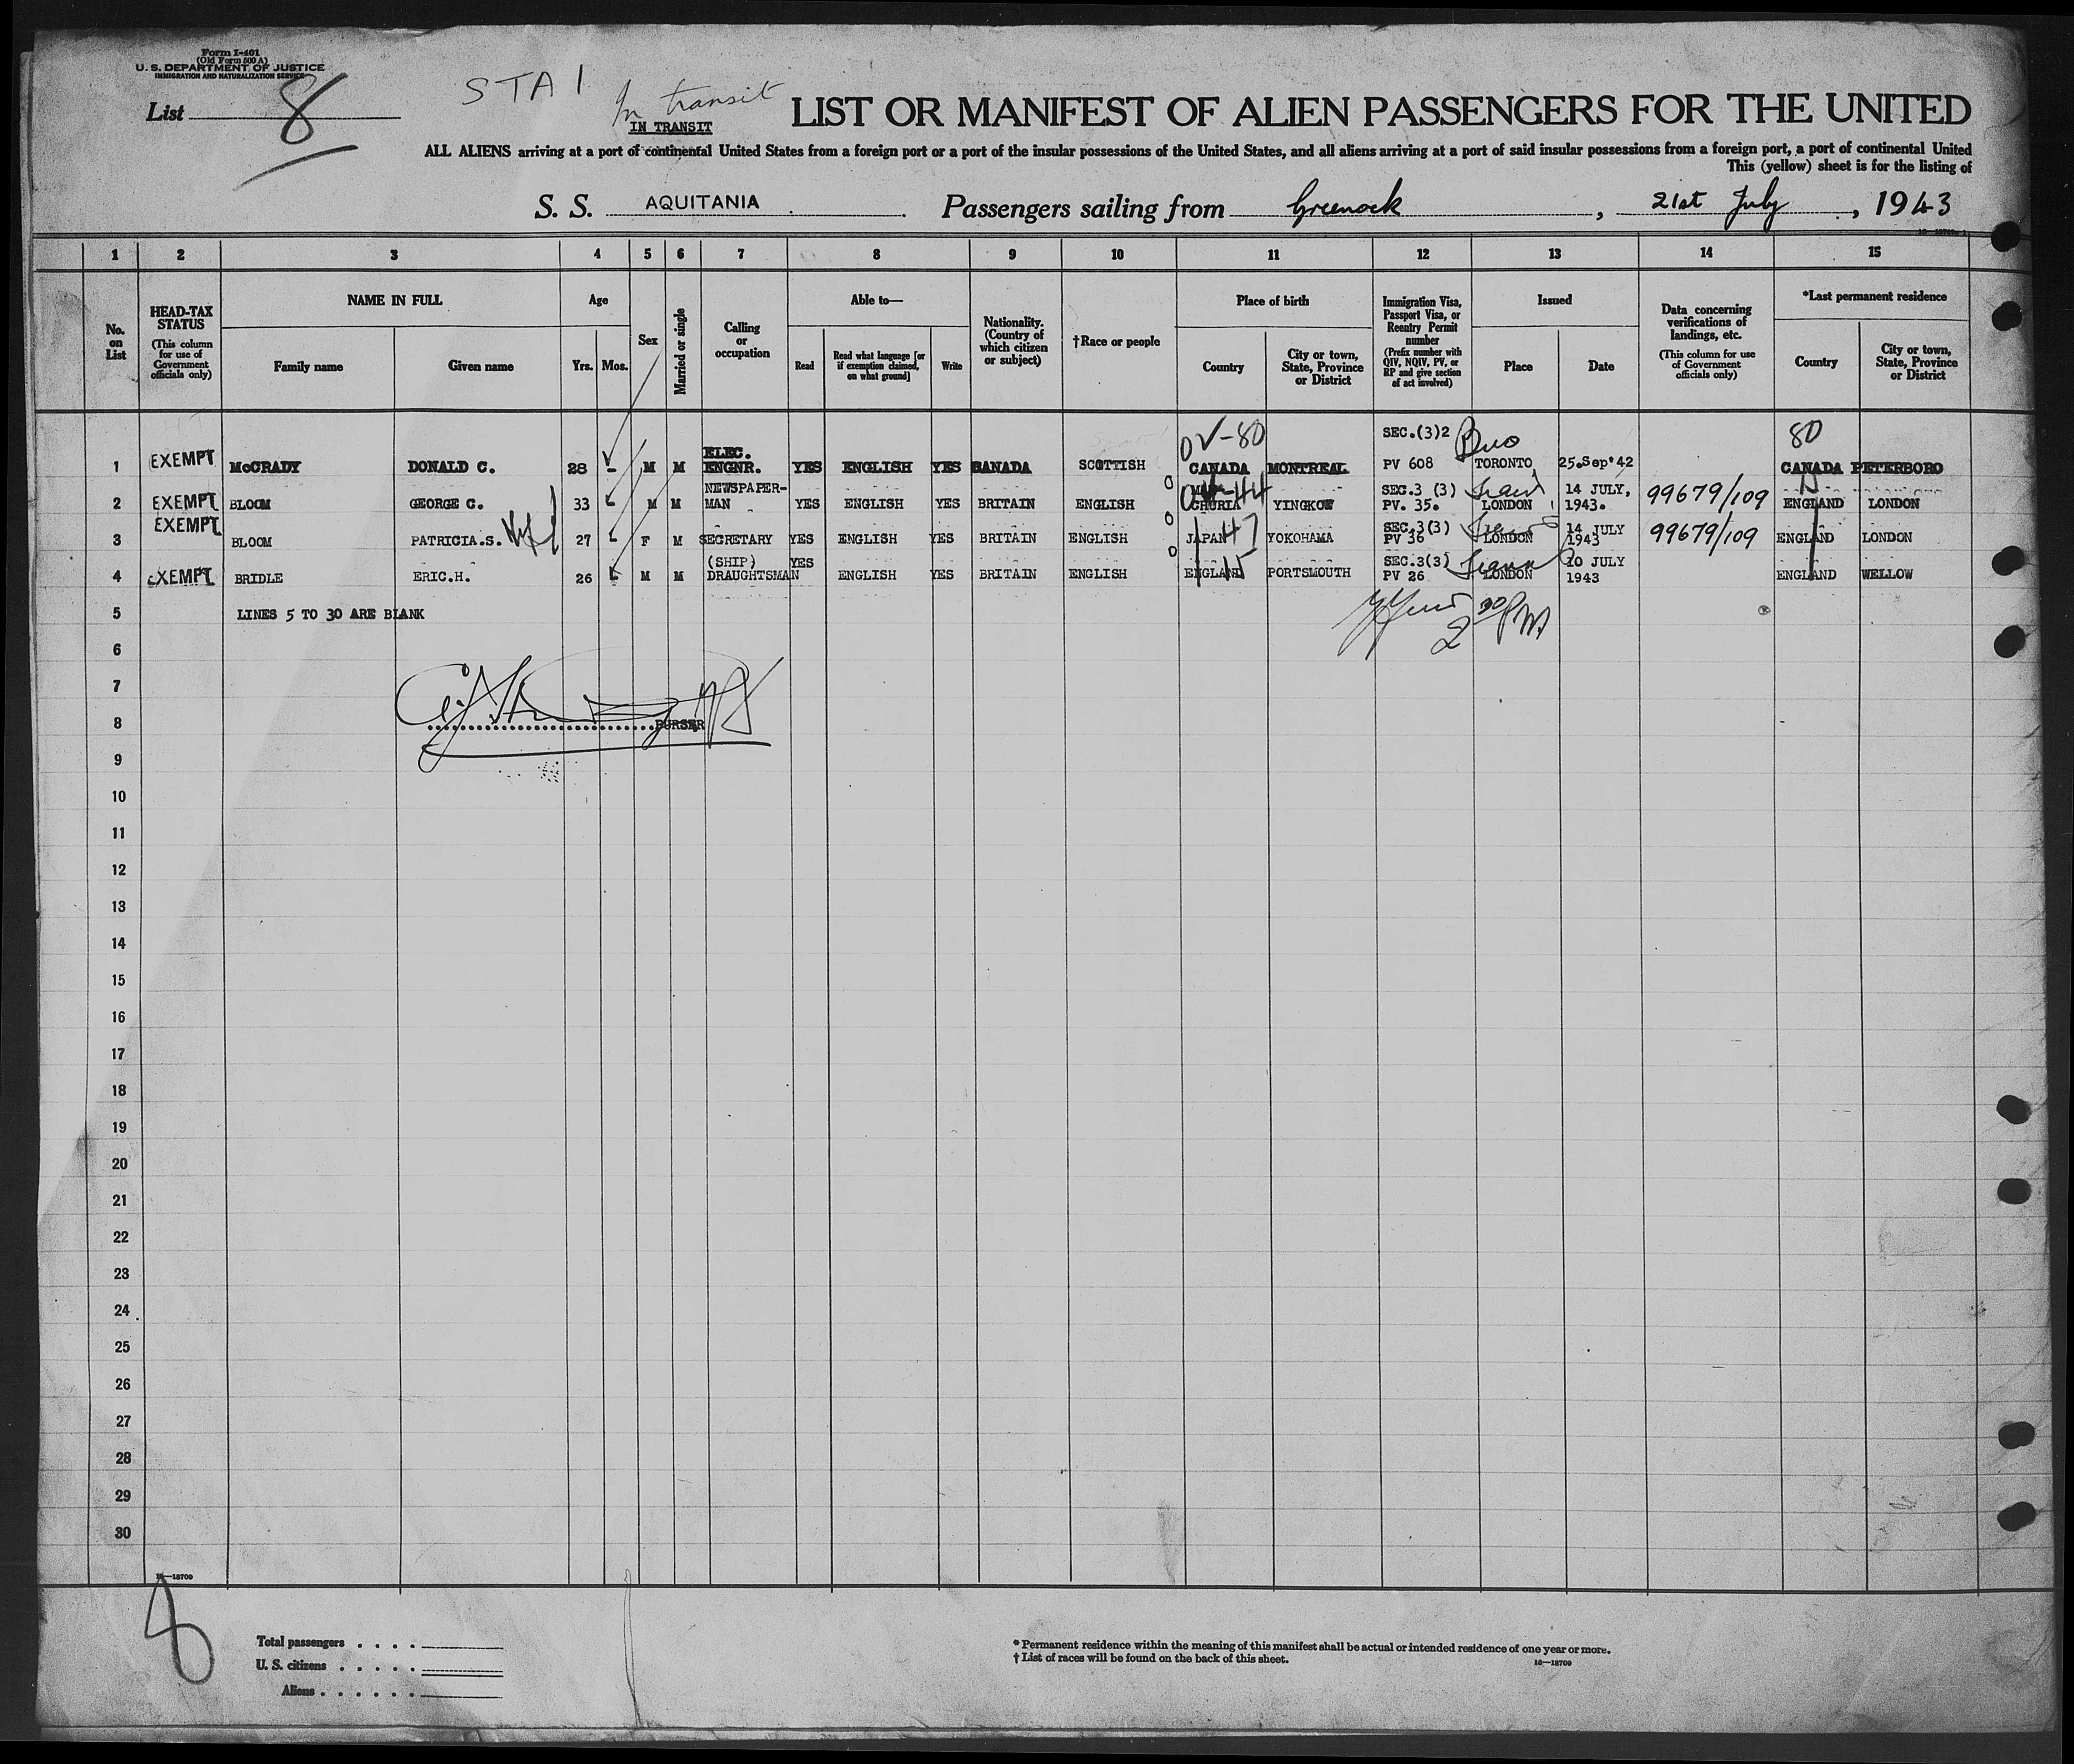 Form I-401
(Old Form 500 A)
U. S. DEPARTMENT OF JUSTICE
IMMIGRATION AND NATURALIZATION SERVICE
List 8
STA 1
In transit
IN TRANSIT
LIST OR MANIFEST OF ALIEN PASSENGERS FOR THE UNITED
ALL ALIENS arriving at a port of continental United States from a foreign port or a port of the insular possessions of the United States, and all aliens arriving at a port of said insular possessions from a foreign port, a port of continental United
This (yellow) sheet is for the listing of
S. S. AQUITANIA Passengers sailing from Greenock, 21st July, 1943
1 2 3 4 5 6 7 8 9 10 11 12 13 14 15
No. on List
HEAD-TAX STATUS (This column for use of Government officials only)
NAME IN FULL Family name Given name
Age Yrs. Mos.
Sex
Married or single
Calling or occupation
Able to— Read Read what language [or if exemption claimed, on what ground] Write
Nationality. (Country of which citizen or subject)
†Race or people
Place of birth Country City or town, State, Province or District
Immigration Visa, Passport Visa, or Reentry Permit number (Prefix number with QIV, NQIV, PV, or RP and give section of act involved)
Issued Place Date
Data concerning verifications of landings, etc. (This column for use of Government officials only)
*Last permanent residence Country City or town, State, Province or District
OV-80 SEC.(3)2 80
1 EXEMPT McCRADY DONALD C. 28 - M M ELEC. ENGNR. YES ENGLISH YES CANADA SCOTTISH CANADA MONTREAL PV 608 TORONTO 25.Sep'42 CANADA PETERBORO
2 EXEMPT BLOOM GEORGE C. 33 M M NEWSPAPER-MAN YES ENGLISH YES BRITAIN ENGLISH CHURIA YINGKOW SEC.3 (3) PV. 35. LONDON 14 JULY, 1943. 99679/109 ENGLAND LONDON
3 EXEMPT BLOOM PATRICIA.S. 27 F M SECRETARY YES ENGLISH YES BRITAIN ENGLISH JAPAN 47 YOKOHAMA SEC.3(3) PV 36 LONDON 14 JULY 1943 99679/109 ENGLAND LONDON
4 EXEMPT BRIDLE ERIC.H. 26 M M (SHIP) DRAUGHTSMAN YES ENGLISH YES BRITAIN ENGLISH ENGLAND PORTSMOUTH SEC.3(3) PV 26 LONDON 10 JULY 1943 ENGLAND WELLOW
5 LINES 5 TO 30 ARE BLANK
2 30 PM
6
7
8 PURSER
9
10
11
12
13
14
15
16
17
18
19
20
21
22
23
24
25
26
27
28
29
30
16—18700
8
Total passengers . . . .
U. S. citizens . . . . .
Aliens . . . . . .
* Permanent residence within the meaning of this manifest shall be actual or intended residence of one year or more.
† List of races will be found on the back of this sheet.
16—18700